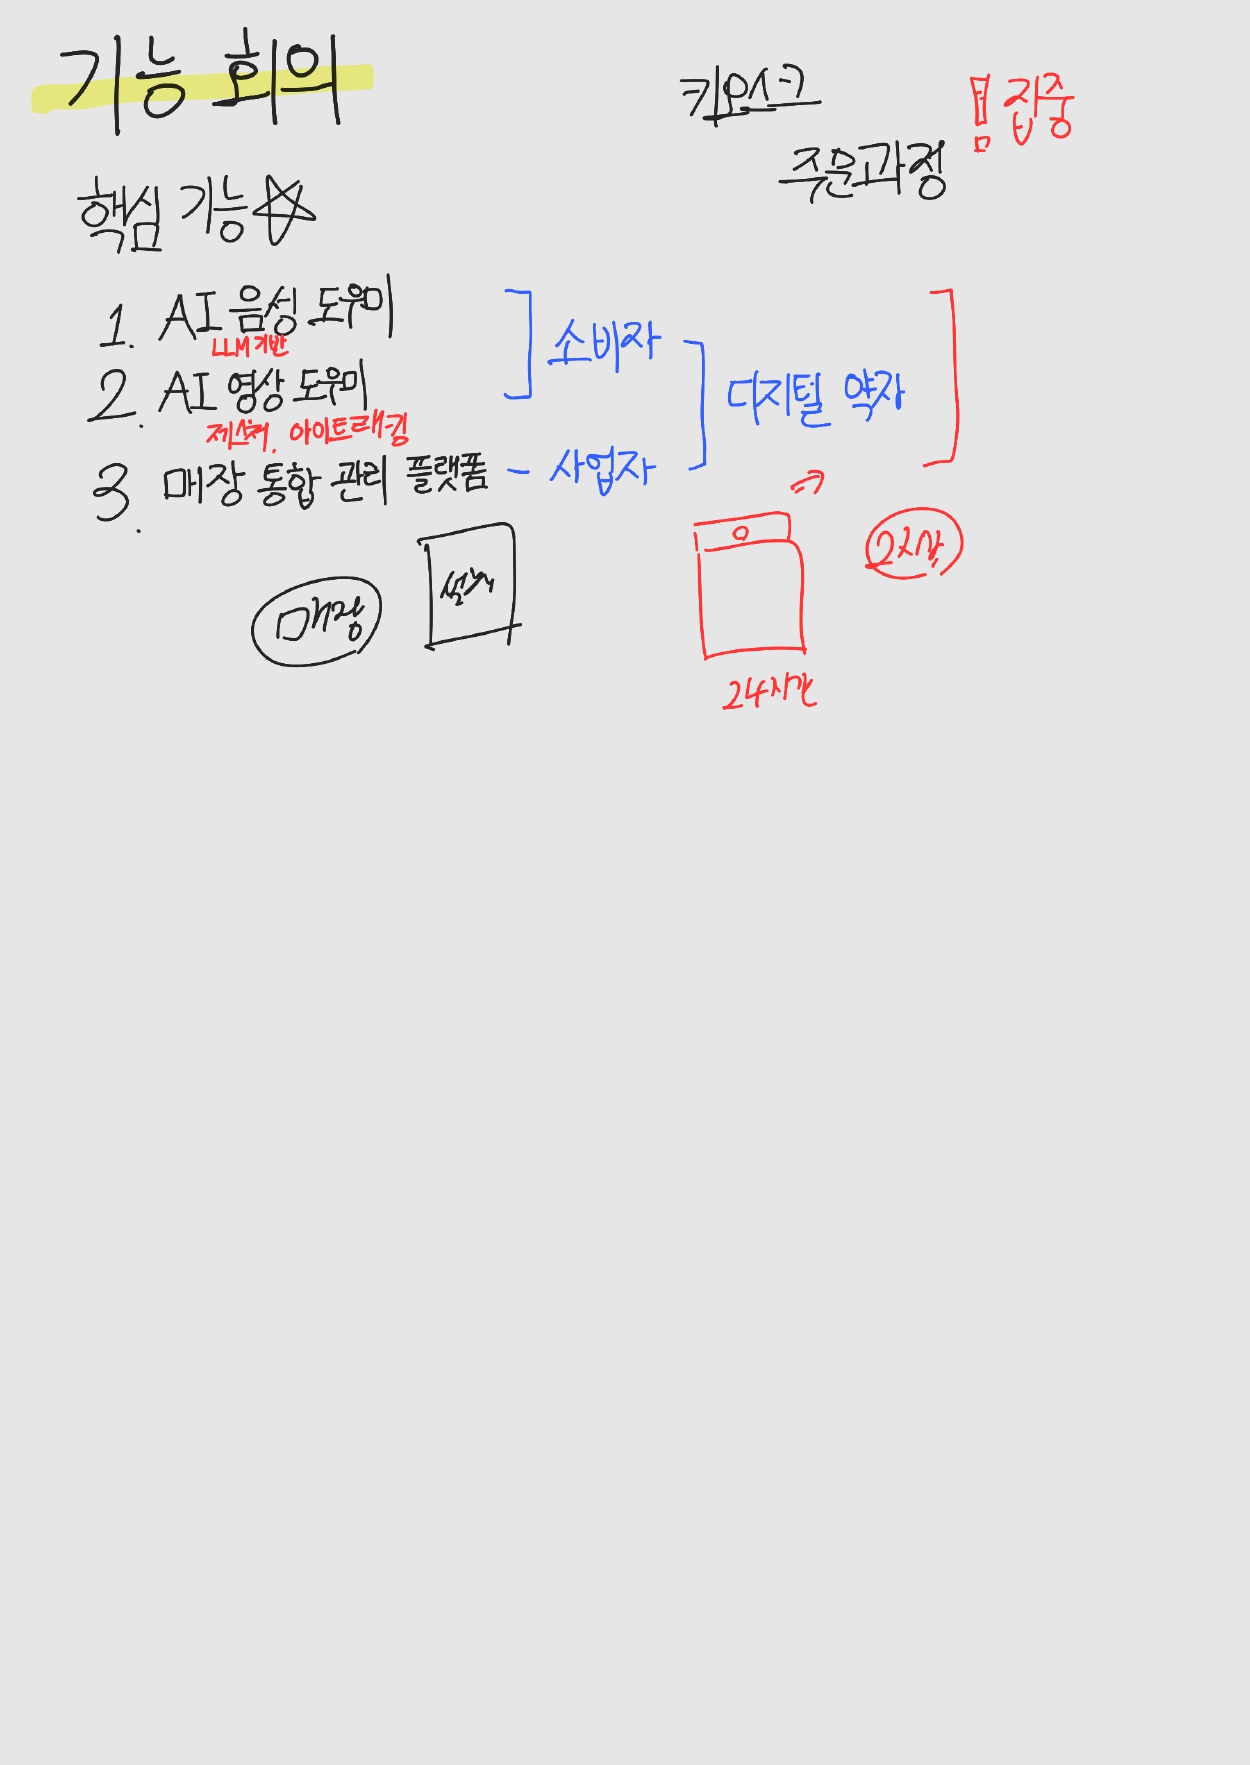 기능 회의
키오스크
주문과정
! 집중
핵심 기능
1. AI 음성 도우미
LLM 기반
2. AI 영상 도우미
제스처, 아이트래킹
3. 매장 통합 관리 플랫폼
소비자
- 사업자
디지털 약자
매장
24시간